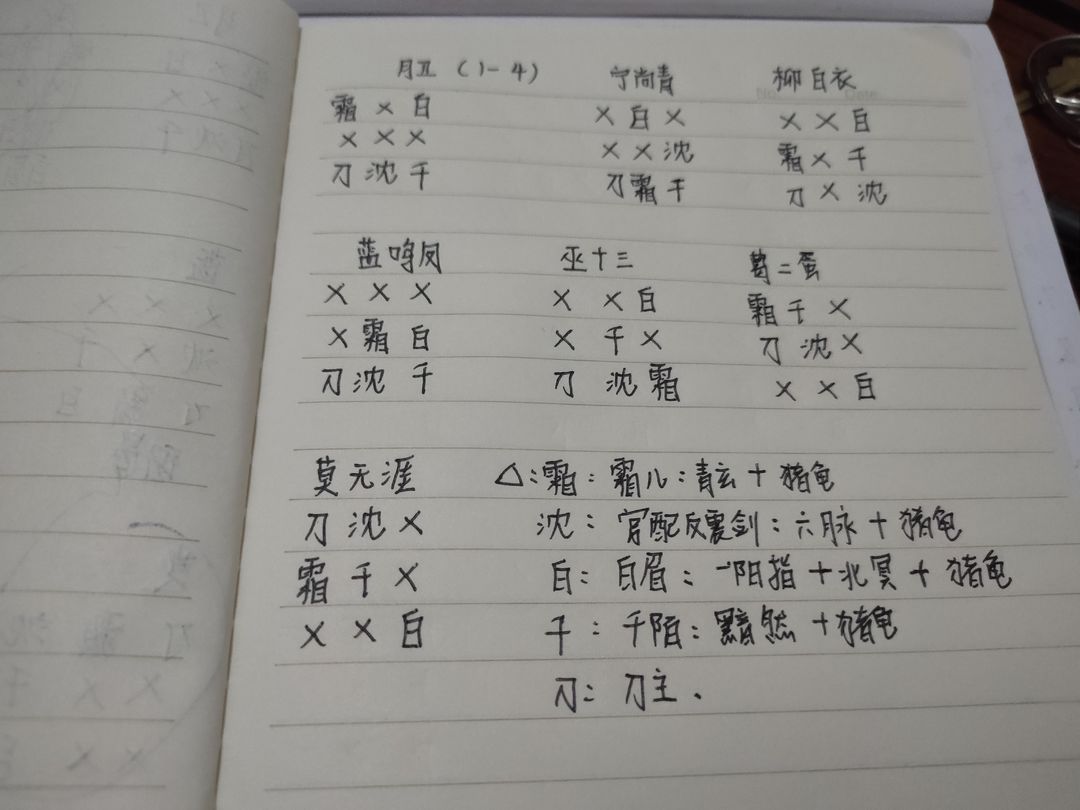 月卫 (1-4) 宁尚青 柳白衣
霜 × 白 × 白 × × × 白
× × × × × 沈 霜 × 千
刀 沈 千 刀 霜 千 刀 × 沈
蓝鸣凤 巫十三 葛二蛋
× × × × × 白 霜 千 ×
× 霜 白 × 千 × 刀 沈 ×
刀 沈 千 刀 沈 霜 × × 白
莫无涯 △:霜:霜儿:青玄+猪龟
刀 沈 × 沈:官配反震剑:六脉+猪龟
霜 千 × 白:白眉:一阳指+北冥+猪龟
× × 白 千:千陌:黯然+猪龟
刀:刀主.